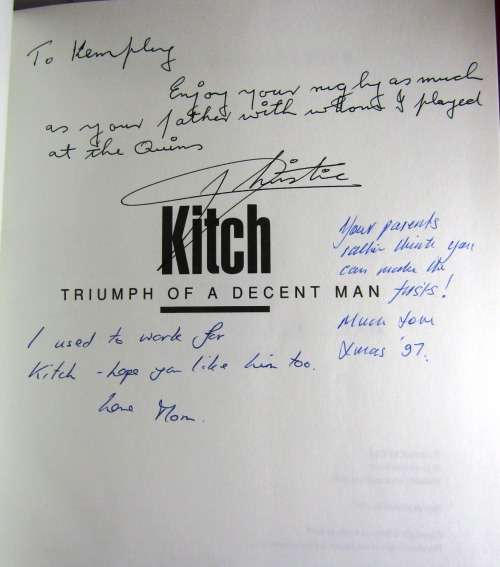 To Kempley
Enjoy your rugby as much
as your father with whom I played
at the Quins
Christie
Kitch
TRIUMPH OF A DECENT MAN
Your parents
rather think you
can make the
firsts!
Much love
Xmas '97.
I used to work for
Kitch - hope you like him too.
Love Mom.